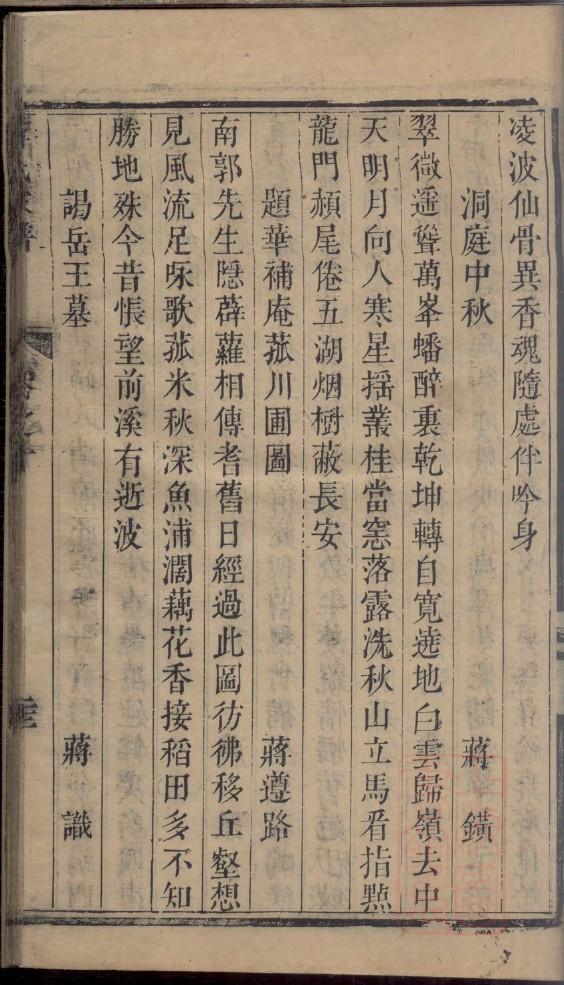 凌波仙骨異香魂隨處伴吟身
洞庭中秋 蔣鐄
翠微遥聳萬峯蟠醉裏乾坤轉自寬遶地白雲歸嶺去中
天明月向人寒星揺叢桂當窓落露洗秋山立馬看指㸃
龍門頳尾倦五湖烟樹蔽長安
題華補庵菰川圃圖 蔣遵路
南郭先生隱薜蘿相傳耆舊日經過此圖彷彿移丘壑想
見風流足咏歌菰米秋深魚浦濶藕花香接稻田多不知
勝地殊今昔悵望前溪有逝波
謁岳王墓 蔣識